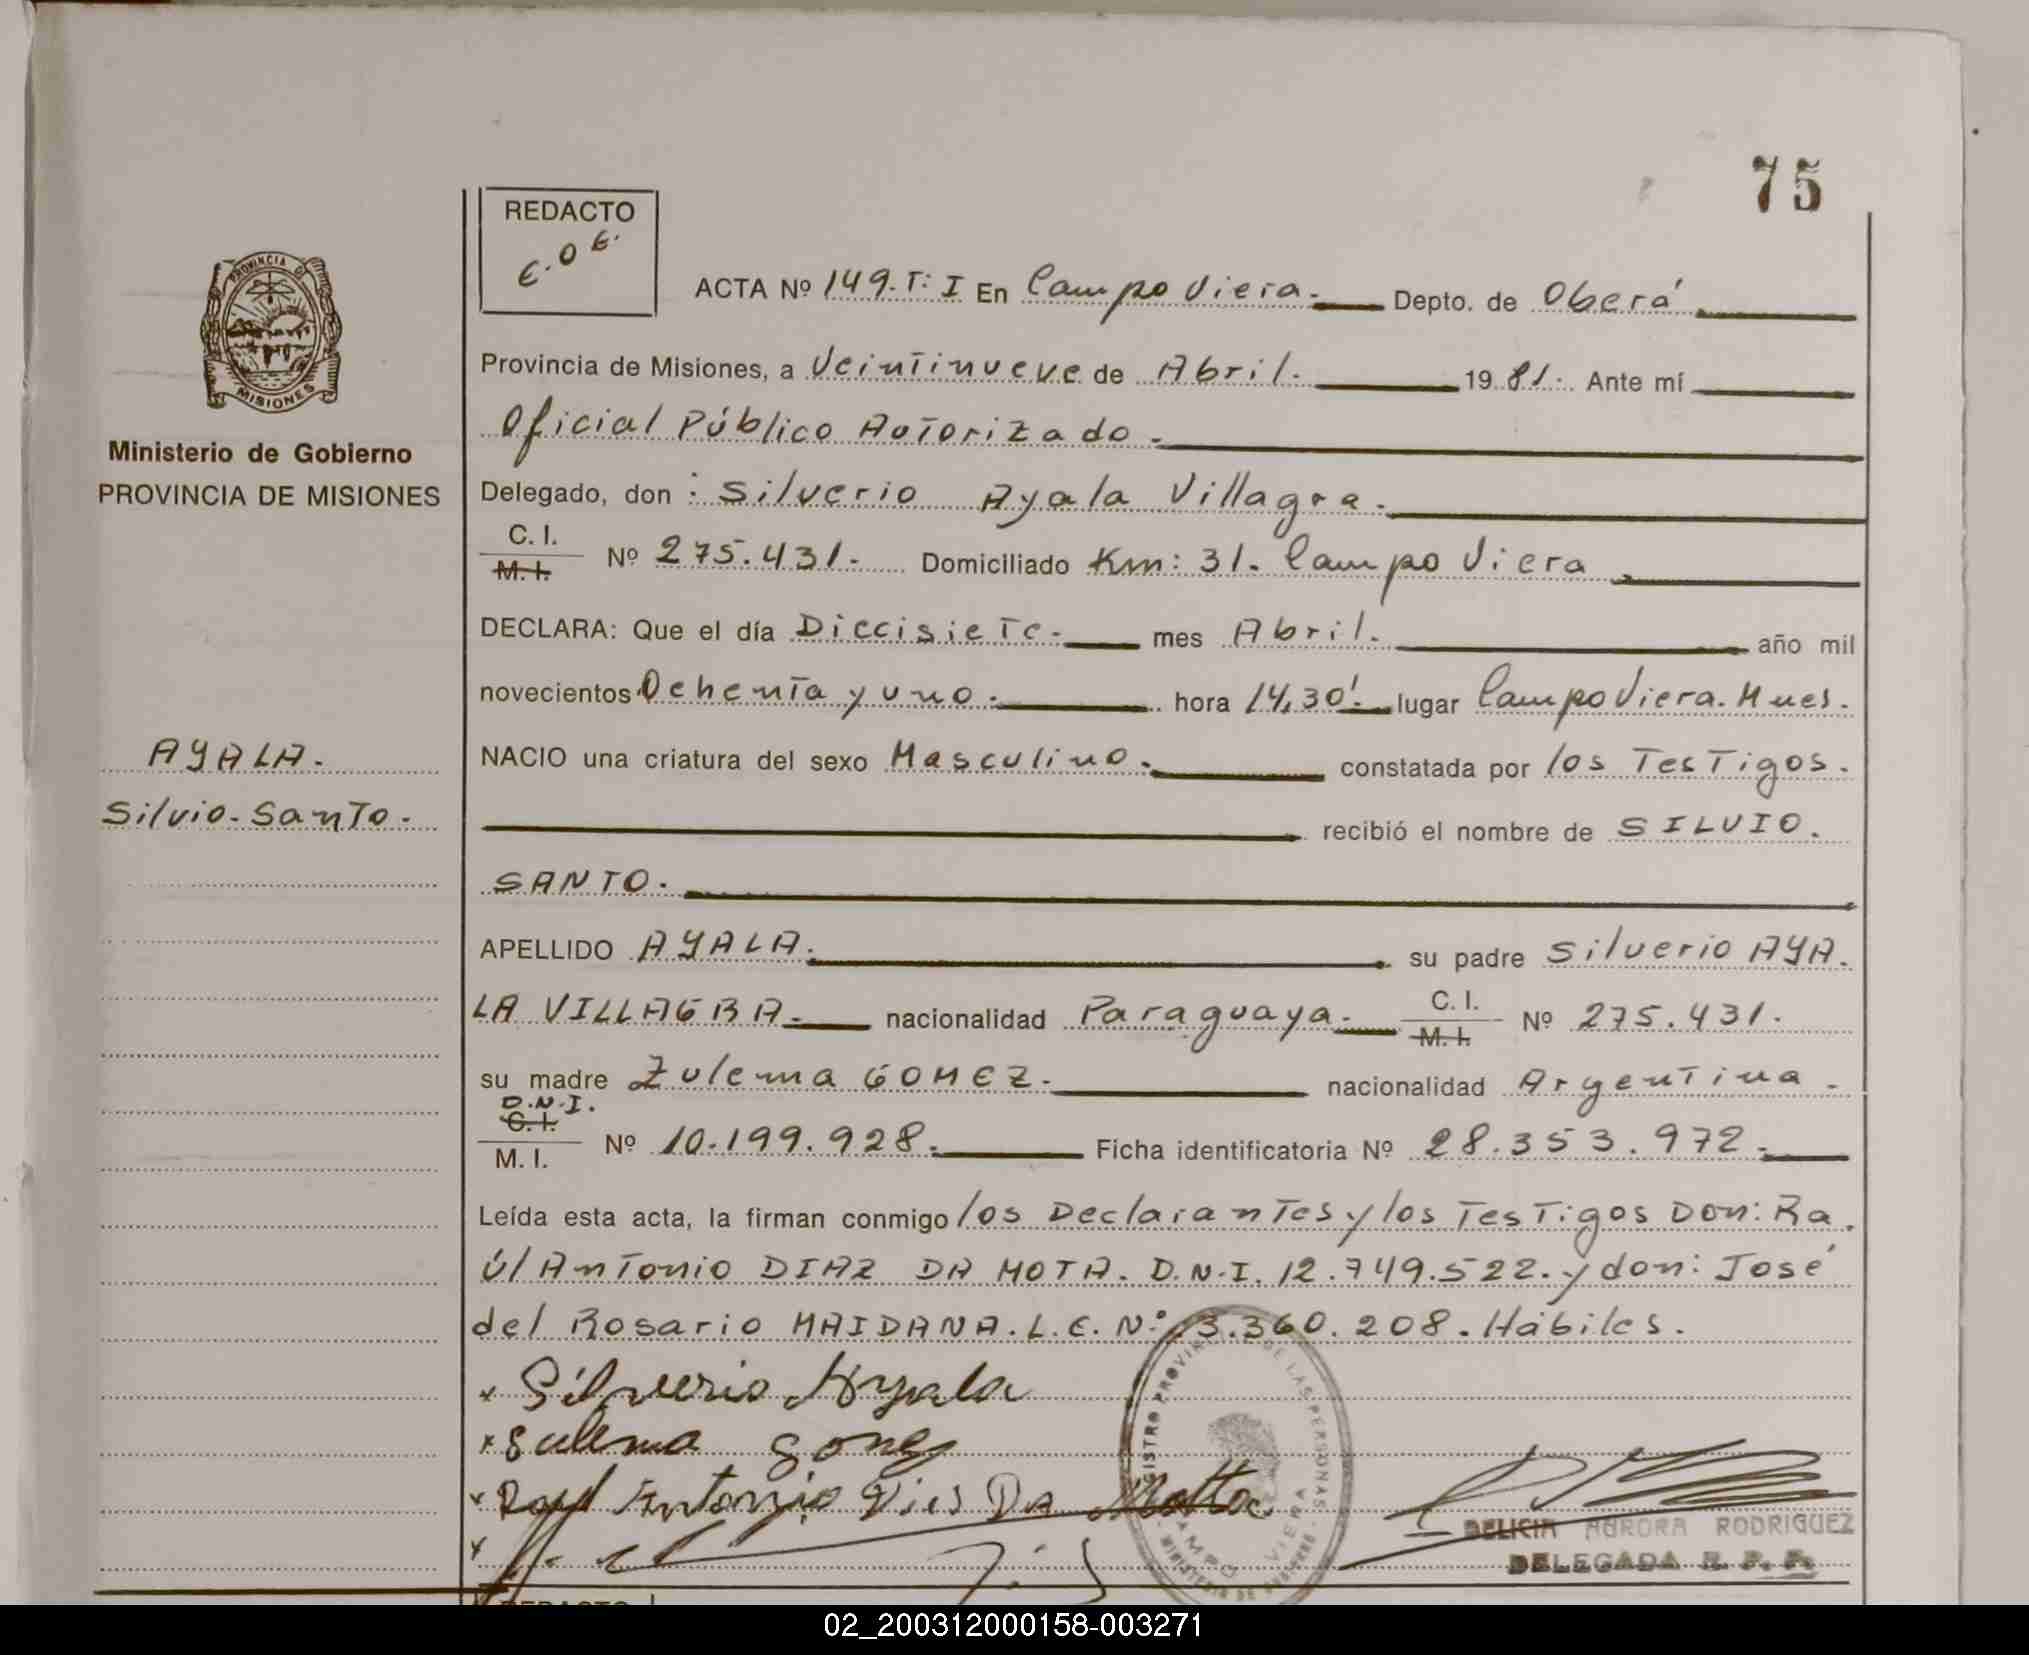 75
REDACTO
E.O.E.
PROVINCIA DE
MISIONES
Ministerio de Gobierno
PROVINCIA DE MISIONES
AYALA.
Silvio-Santo.
ACTA Nº 149.T:I En Campo Viera.- Depto. de Oberá
Provincia de Misiones, a Veintinueve de Abril. 1981. Ante mí
Oficial Público Autorizado.
Delegado, don : Silverio Ayala Villagra.
C. I.
M. I. Nº 275.431. Domiciliado Km: 31. Campo Viera
DECLARA: Que el día Diecisiete.- mes Abril. año mil
novecientos Ochenta y uno. hora 14,30'. lugar Campo Viera. Mnes.
NACIO una criatura del sexo Masculino. constatada por los Testigos.
recibió el nombre de SILVIO.
SANTO.
APELLIDO AYALA. su padre Silverio AYA.
LA VILLAGRA.- nacionalidad Paraguaya.- C. I. M. I. Nº 275.431.
su madre Zulema GOMEZ. nacionalidad Argentina.
D.N.I.
C. I.
M. I. Nº 10.199.928. Ficha identificatoria Nº 28.353.972.
Leída esta acta, la firman conmigo los Declarantes y los Testigos Don: Ra.
úl Antonio DIAZ DA MOTA. D.N.I. 12.749.522. y don: José
del Rosario MAIDANA. L.E. Nº 3.360.208. Hábiles.
x Silverio Ayala
x Sulema gomes
x Raul Antonio Dias Da Motta
x
REGISTRO PROVINCIAL DE LAS PERSONAS
CAMPO VIERA
MINISTERIO DE GOBIERNO
DELICIA AURORA RODRIGUEZ
DELEGADA R. P. P.
REDACTO
02_200312000158-003271